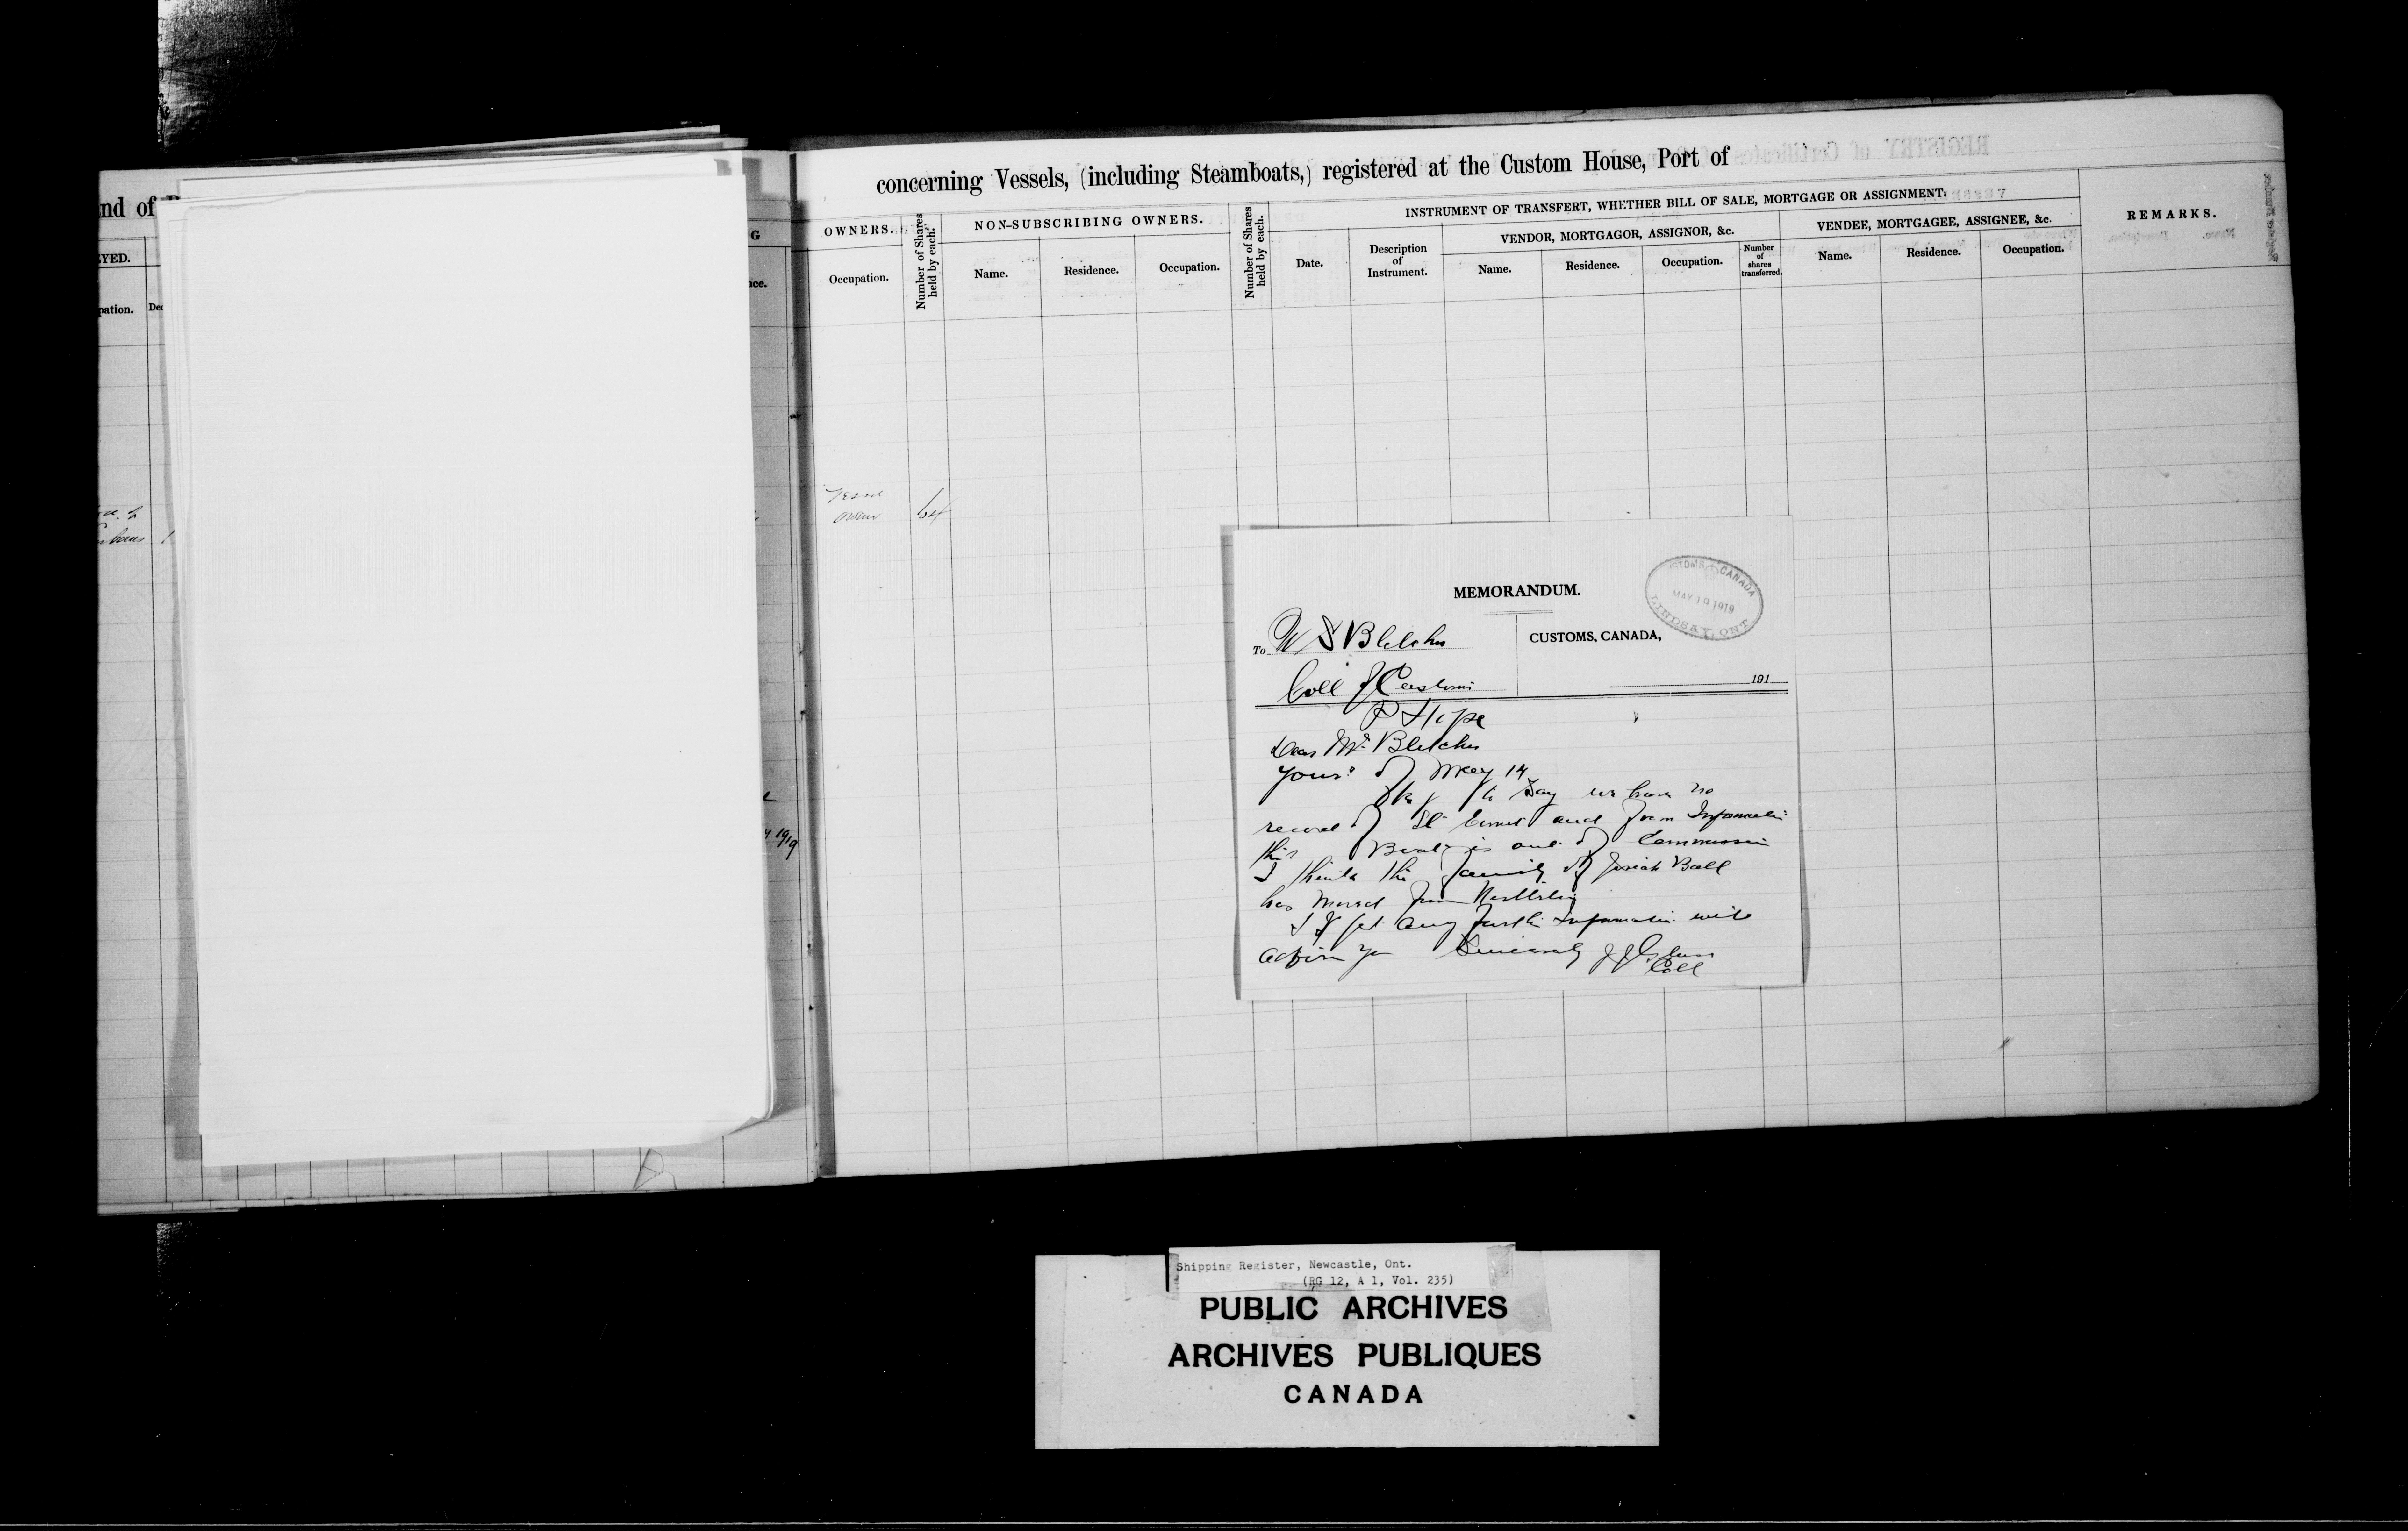 nd of
YED.
pation.
Dec
G
nce.
1919
concerning Vessels, (including Steamboats,) registered at the Custom House, Port of
OWNERS.
Occupation.
Number of Shares held by each.
NON-SUBSCRIBING OWNERS.
Name. Residence. Occupation.
Number of Shares held by each.
INSTRUMENT OF TRANSFERT, WHETHER BILL OF SALE, MORTGAGE OR ASSIGNMENT.
Date.
Description of Instrument.
VENDOR, MORTGAGOR, ASSIGNOR, &c.
Name. Residence. Occupation.
Number of shares transferred.
VENDEE, MORTGAGEE, ASSIGNEE, &c.
Name. Residence. Occupation.
REMARKS.
64
MEMORANDUM.
CUSTOMS CANADA
MAY 19 1919
LINDSAY, ONT.
To W S Bletcher
CUSTOMS, CANADA,
Coll of Customs
191
P Hope
Dear Mr. Bletcher
Yours of May 14
to say we have no
record of and from Information
this Boat is out of Commission
I think the family of Josiah Ball
has moved from
I get any further Information will
advise you Sincerely
Coll
Shipping Register, Newcastle, Ont.
(RG 12, A 1, Vol. 235)
PUBLIC ARCHIVES
ARCHIVES PUBLIQUES
CANADA